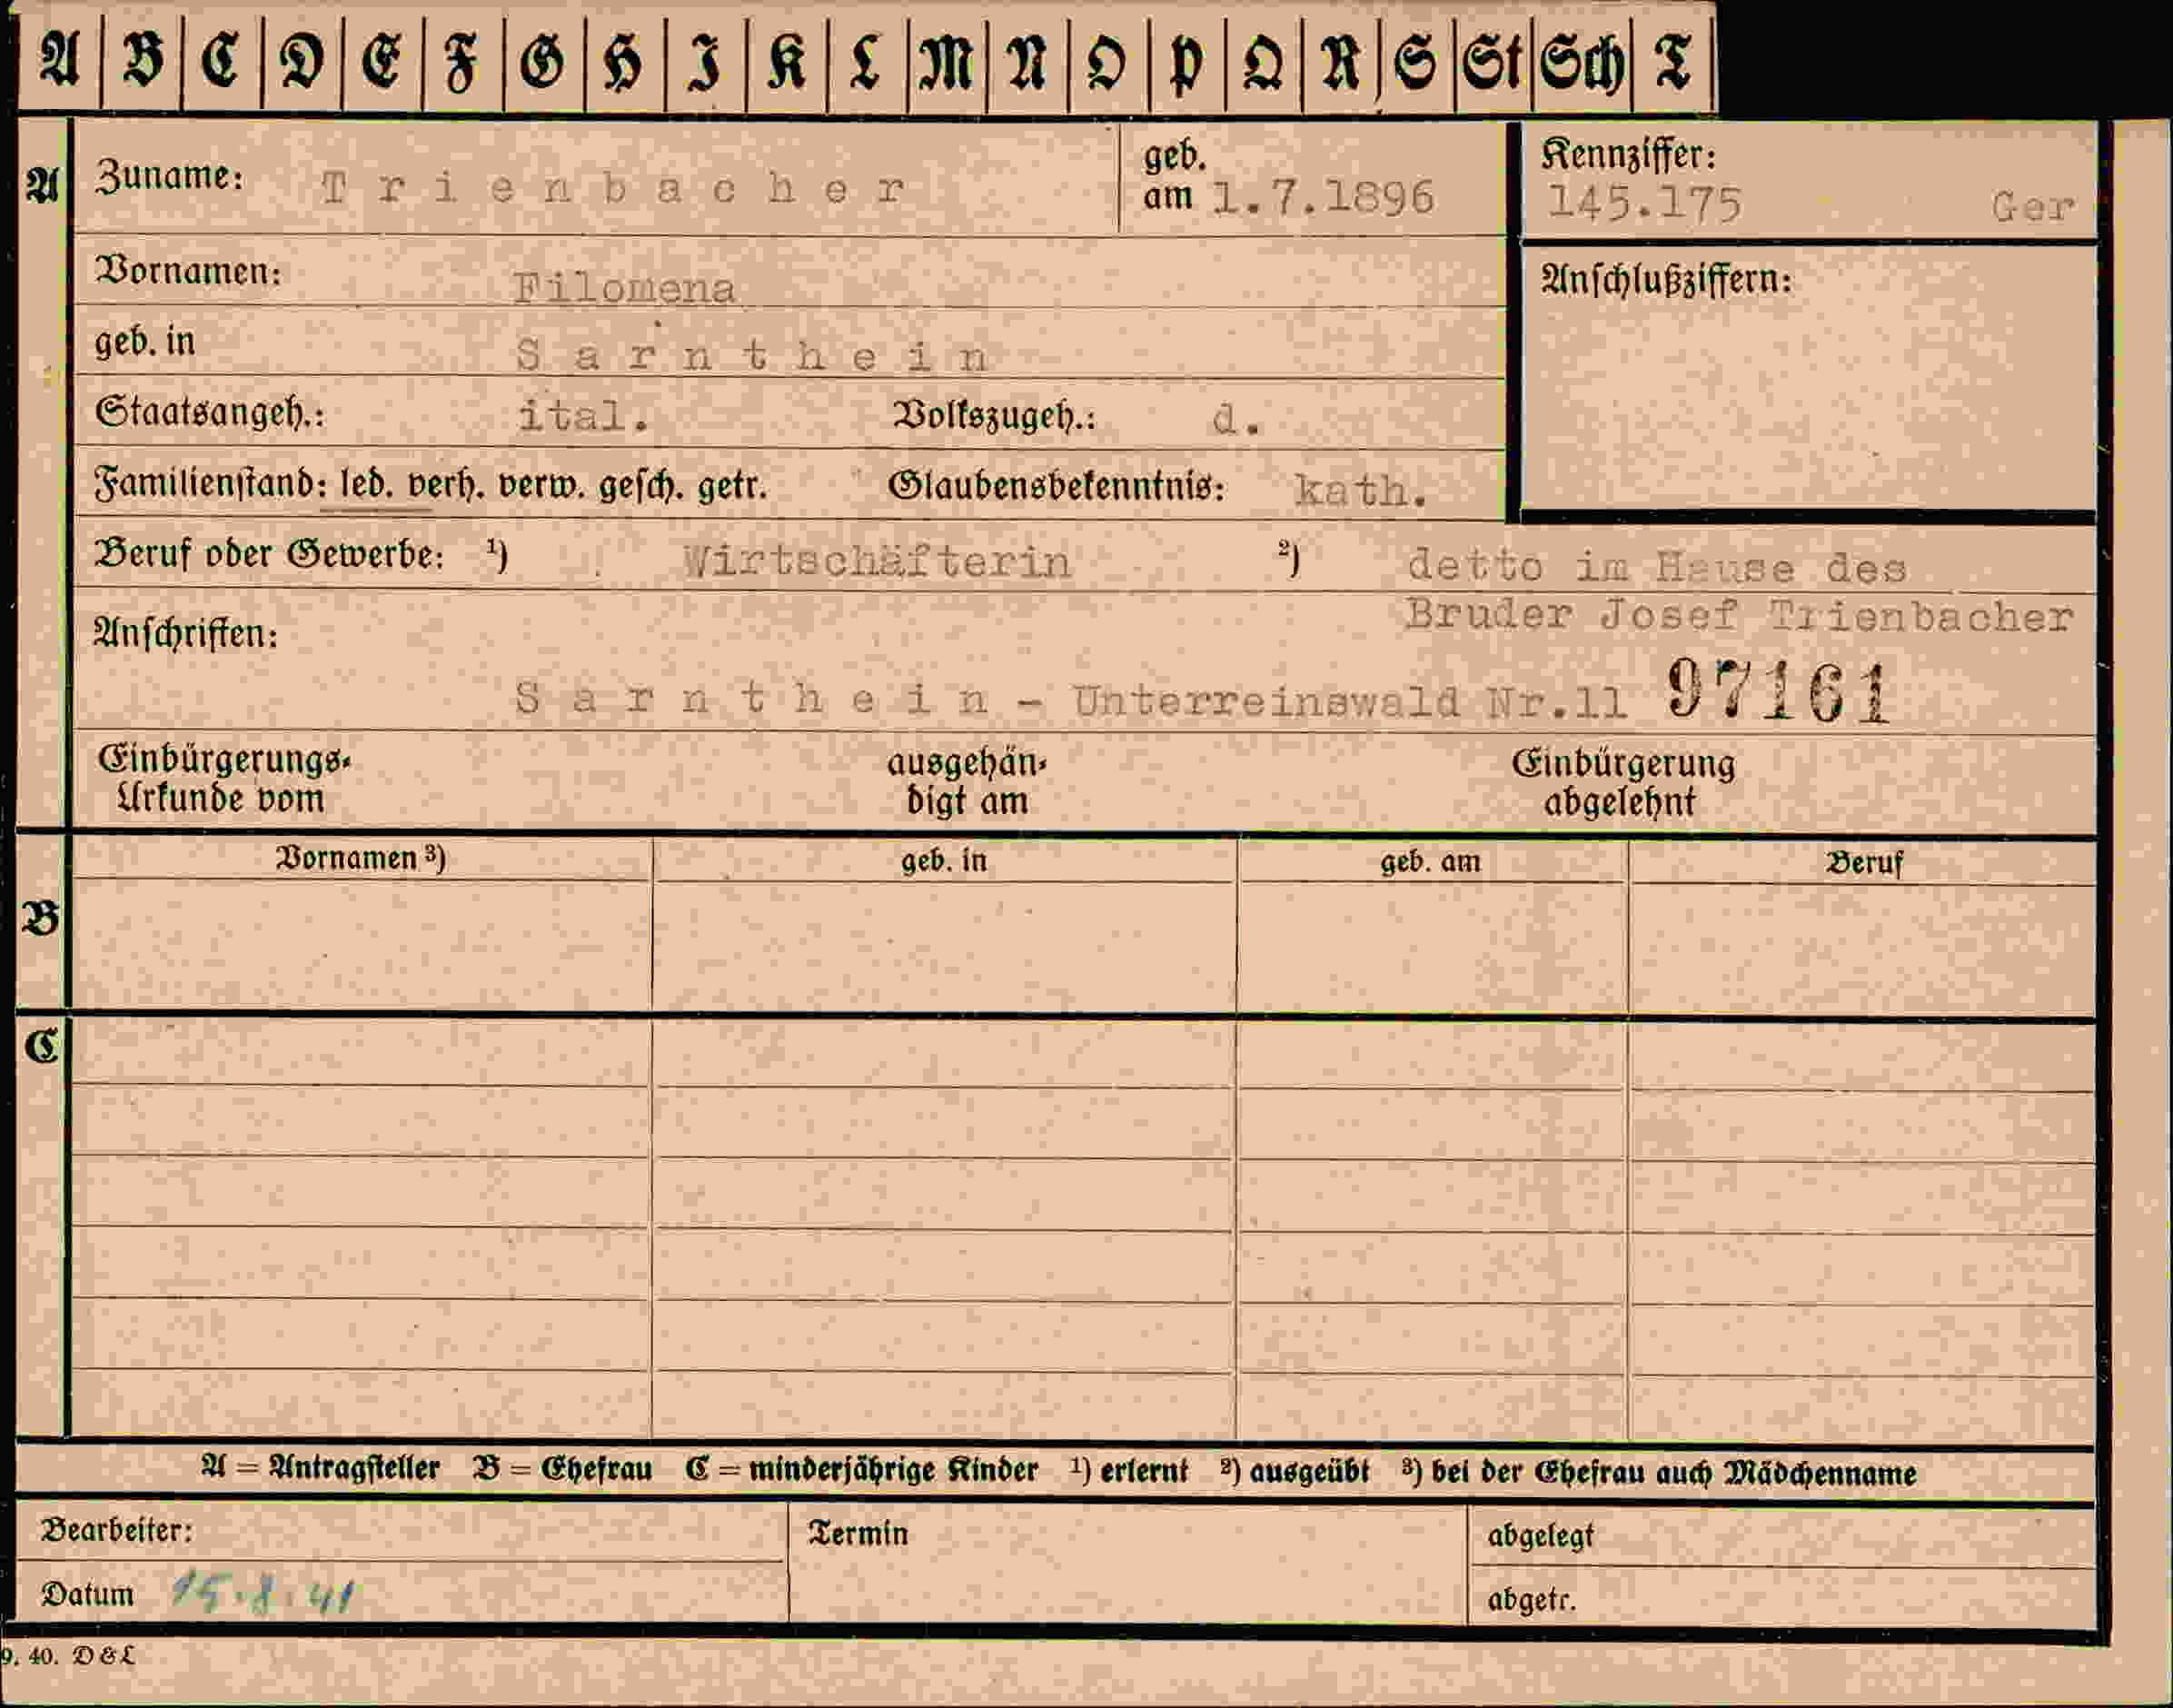 A B C D E F G H I K L M N O P Q R S St Sch T
A Zuname: Trienbacher geb. am 1.7.1896 Kennziffer: 145.175 Ger
Vornamen: Filomena Anschlußziffern:
geb. in Sarnthein
Staatsangeh.: ital. Volkszugeh.: d.
Familienstand: led. verh. verw. gesch. getr. Glaubensbekenntnis: kath.
Beruf oder Gewerbe: ¹) Wirtschäfterin ²) detto im Hause des
Bruder Josef Trienbacher
Anschriften:
Sarnthein - Unterreinswald Nr.11 97161
Einbürgerungs- ausgehän- Einbürgerung
Urkunde vom digt am abgelehnt
Vornamen ³) geb. in geb. am Beruf
B
C
A = Antragsteller B = Ehefrau C = minderjährige Kinder ¹) erlernt ²) ausgeübt ³) bei der Ehefrau auch Mädchenname
Bearbeiter: Termin abgelegt
Datum 15.8.41 abgetr.
9. 40. D & L